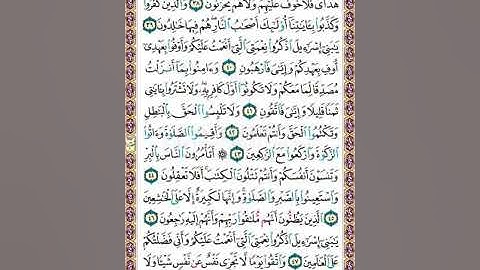 هُدَاىَ فَلَا خَوْفٌ عَلَيْهِمْ وَلَا هُمْ يَحْزَنُونَ ٣٨ وَالَّذِينَ كَفَرُوا
وَكَذَّبُوا بِـَٔايَـٰتِنَا أُولَـٰٓئِكَ أَصْحَـٰبُ النَّارِ هُمْ فِيهَا خَـٰلِدُونَ ٣٩
يَـٰبَنِىٓ إِسْرَٰٓءِيلَ اذْكُرُوا نِعْمَتِىَ الَّتِىٓ أَنْعَمْتُ عَلَيْكُمْ وَأَوْفُوا بِعَهْدِىٓ
أُوفِ بِعَهْدِكُمْ وَإِيَّـٰىَ فَارْهَبُونِ ٤٠ وَءَامِنُوا بِمَآ أَنزَلْتُ
مُصَدِّقًا لِّمَا مَعَكُمْ وَلَا تَكُونُوٓا أَوَّلَ كَافِرٍۭ بِهِۦ وَلَا تَشْتَرُوا بِـَٔايَـٰتِى
ثَمَنًا قَلِيلًا وَإِيَّـٰىَ فَاتَّقُونِ ٤١ وَلَا تَلْبِسُوا الْحَقَّ بِالْبَـٰطِلِ
وَتَكْتُمُوا الْحَقَّ وَأَنتُمْ تَعْلَمُونَ ٤٢ وَأَقِيمُوا الصَّلَوٰةَ وَءَاتُوا
الزَّكَوٰةَ وَارْكَعُوا مَعَ الرَّٰكِعِينَ ٤٣ ۞ أَتَأْمُرُونَ النَّاسَ بِالْبِرِّ
وَتَنسَوْنَ أَنفُسَكُمْ وَأَنتُمْ تَتْلُونَ الْكِتَـٰبَ أَفَلَا تَعْقِلُونَ ٤٤
وَاسْتَعِينُوا بِالصَّبْرِ وَالصَّلَوٰةِ وَإِنَّهَا لَكَبِيرَةٌ إِلَّا عَلَى الْخَـٰشِعِينَ
٤٥ الَّذِينَ يَظُنُّونَ أَنَّهُم مُّلَـٰقُوا رَبِّهِمْ وَأَنَّهُمْ إِلَيْهِ رَٰجِعُونَ ٤٦
يَـٰبَنِىٓ إِسْرَٰٓءِيلَ اذْكُرُوا نِعْمَتِىَ الَّتِىٓ أَنْعَمْتُ عَلَيْكُمْ وَأَنِّى فَضَّلْتُكُمْ
عَلَى الْعَـٰلَمِينَ ٤٧ وَاتَّقُوا يَوْمًا لَّا تَجْزِى نَفْسٌ عَن نَّفْسٍ شَيْـًٔا وَلَا